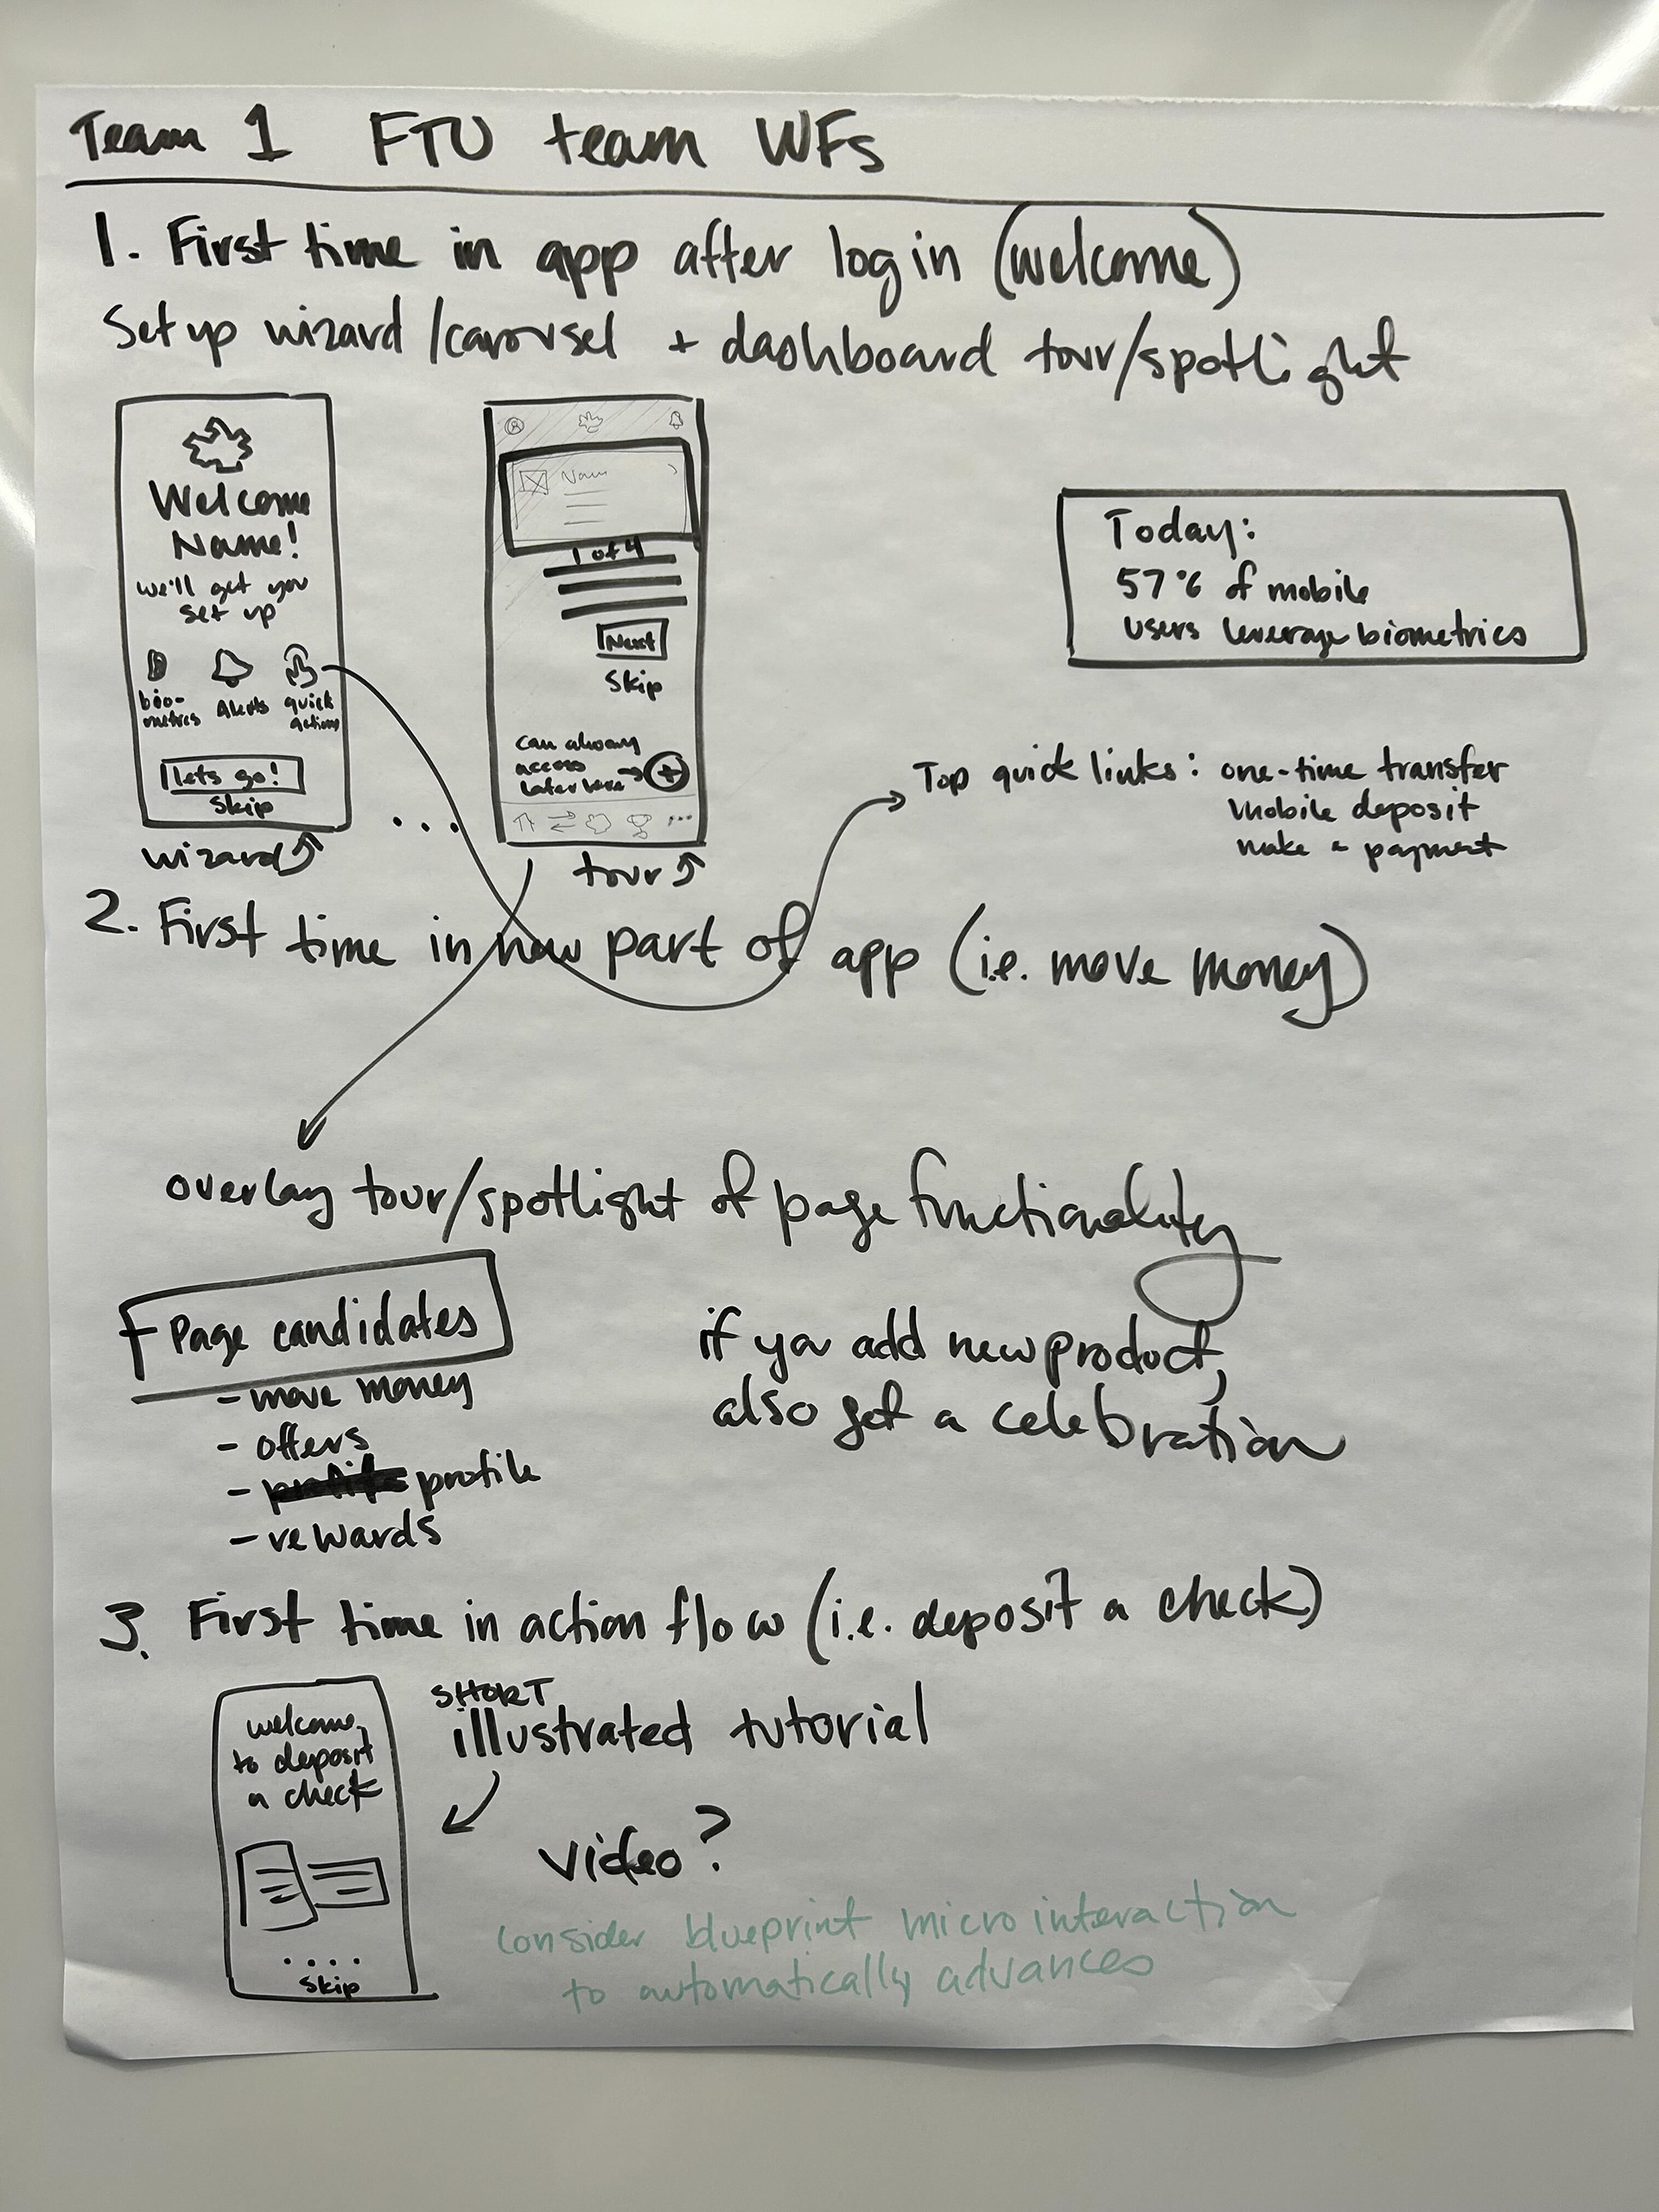 Team 1 FTU team WFs
1. First time in app after login (welcome)
Set up wizard/carousel + dashboard tour/spotlight
Welcome
Name!
we'll get you
set up
bio-
metrics
Alerts
quick
actions
lets go!
Skip
wizard
...
Name
1 of 4
Next
Skip
Can always
access
later here
tour
Today:
57% of mobile
users leverage biometrics
Top quick links: one-time transfer
mobile deposit
make a payment
2. First time in new part of app (i.e. move money)
overlay tour/spotlight of page functionality
Page candidates
- move money
- offers
- profile
- rewards
if you add new product,
also get a celebration
3. First time in action flow (i.e. deposit a check)
welcome
to deposit
a check
....
Skip
SHORT
illustrated tutorial
video?
consider blueprint micro interaction
to automatically advances